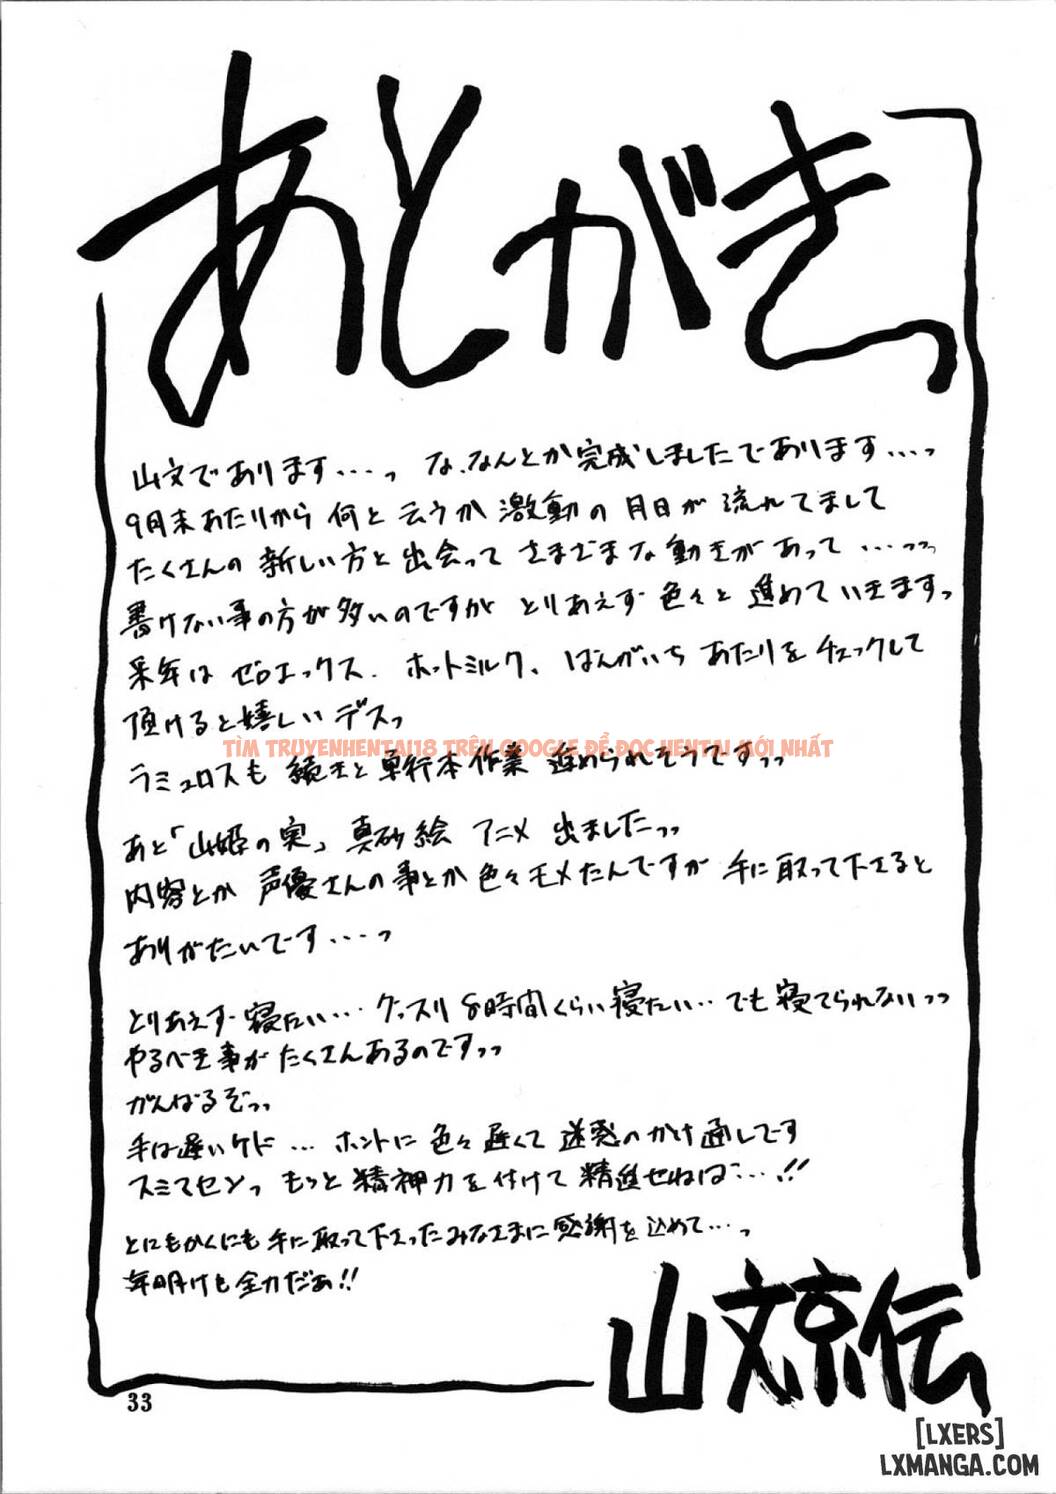 あとがき
山文であります・・・・っ な、なんとか完成しましたであります・・・・っ
9月末あたりから何と云うか激動の月日が流れてまして
たくさんの新しい方と出会ってさまざまな動きがあって・・・・っっ
書けない事の方が多いのですがとりあえず色々と進めていきますっ
来年はゼロエックス、ホットミルク、ばんがいちあたりをチェックして
頂けると嬉しいデスっ
TÌM TRUYENHENTAI18 TRÊN GOOGLE ĐỂ ĐỌC HENTAI MỚI NHẤT
ラミュロスも続きと単行本作業進められそうですっっ
あと「山姫の実」真砂絵アニメ出ましたっっ
内容とか声優さんの事とか色々モメたんですが手に取って下さると
ありがたいです・・・・っ
とりあえず寝たい・・・グッスリ8時間くらい寝たい・・でも寝てられないっっ
やるべき事がたくさんあるのですっっ
がんばるぞっっ
手は遅いケド・・・ホントに色々遅くて迷惑のかけ通しです
スミマセンっ もっと精神力を付けて精進せねば・・・・!!
とにもかくにも手に取って下さったみなさまに感謝を込めて・・・っ
年明けも全力だぁ!!
山文京伝
33
[LXERS]
LXMANGA.COM